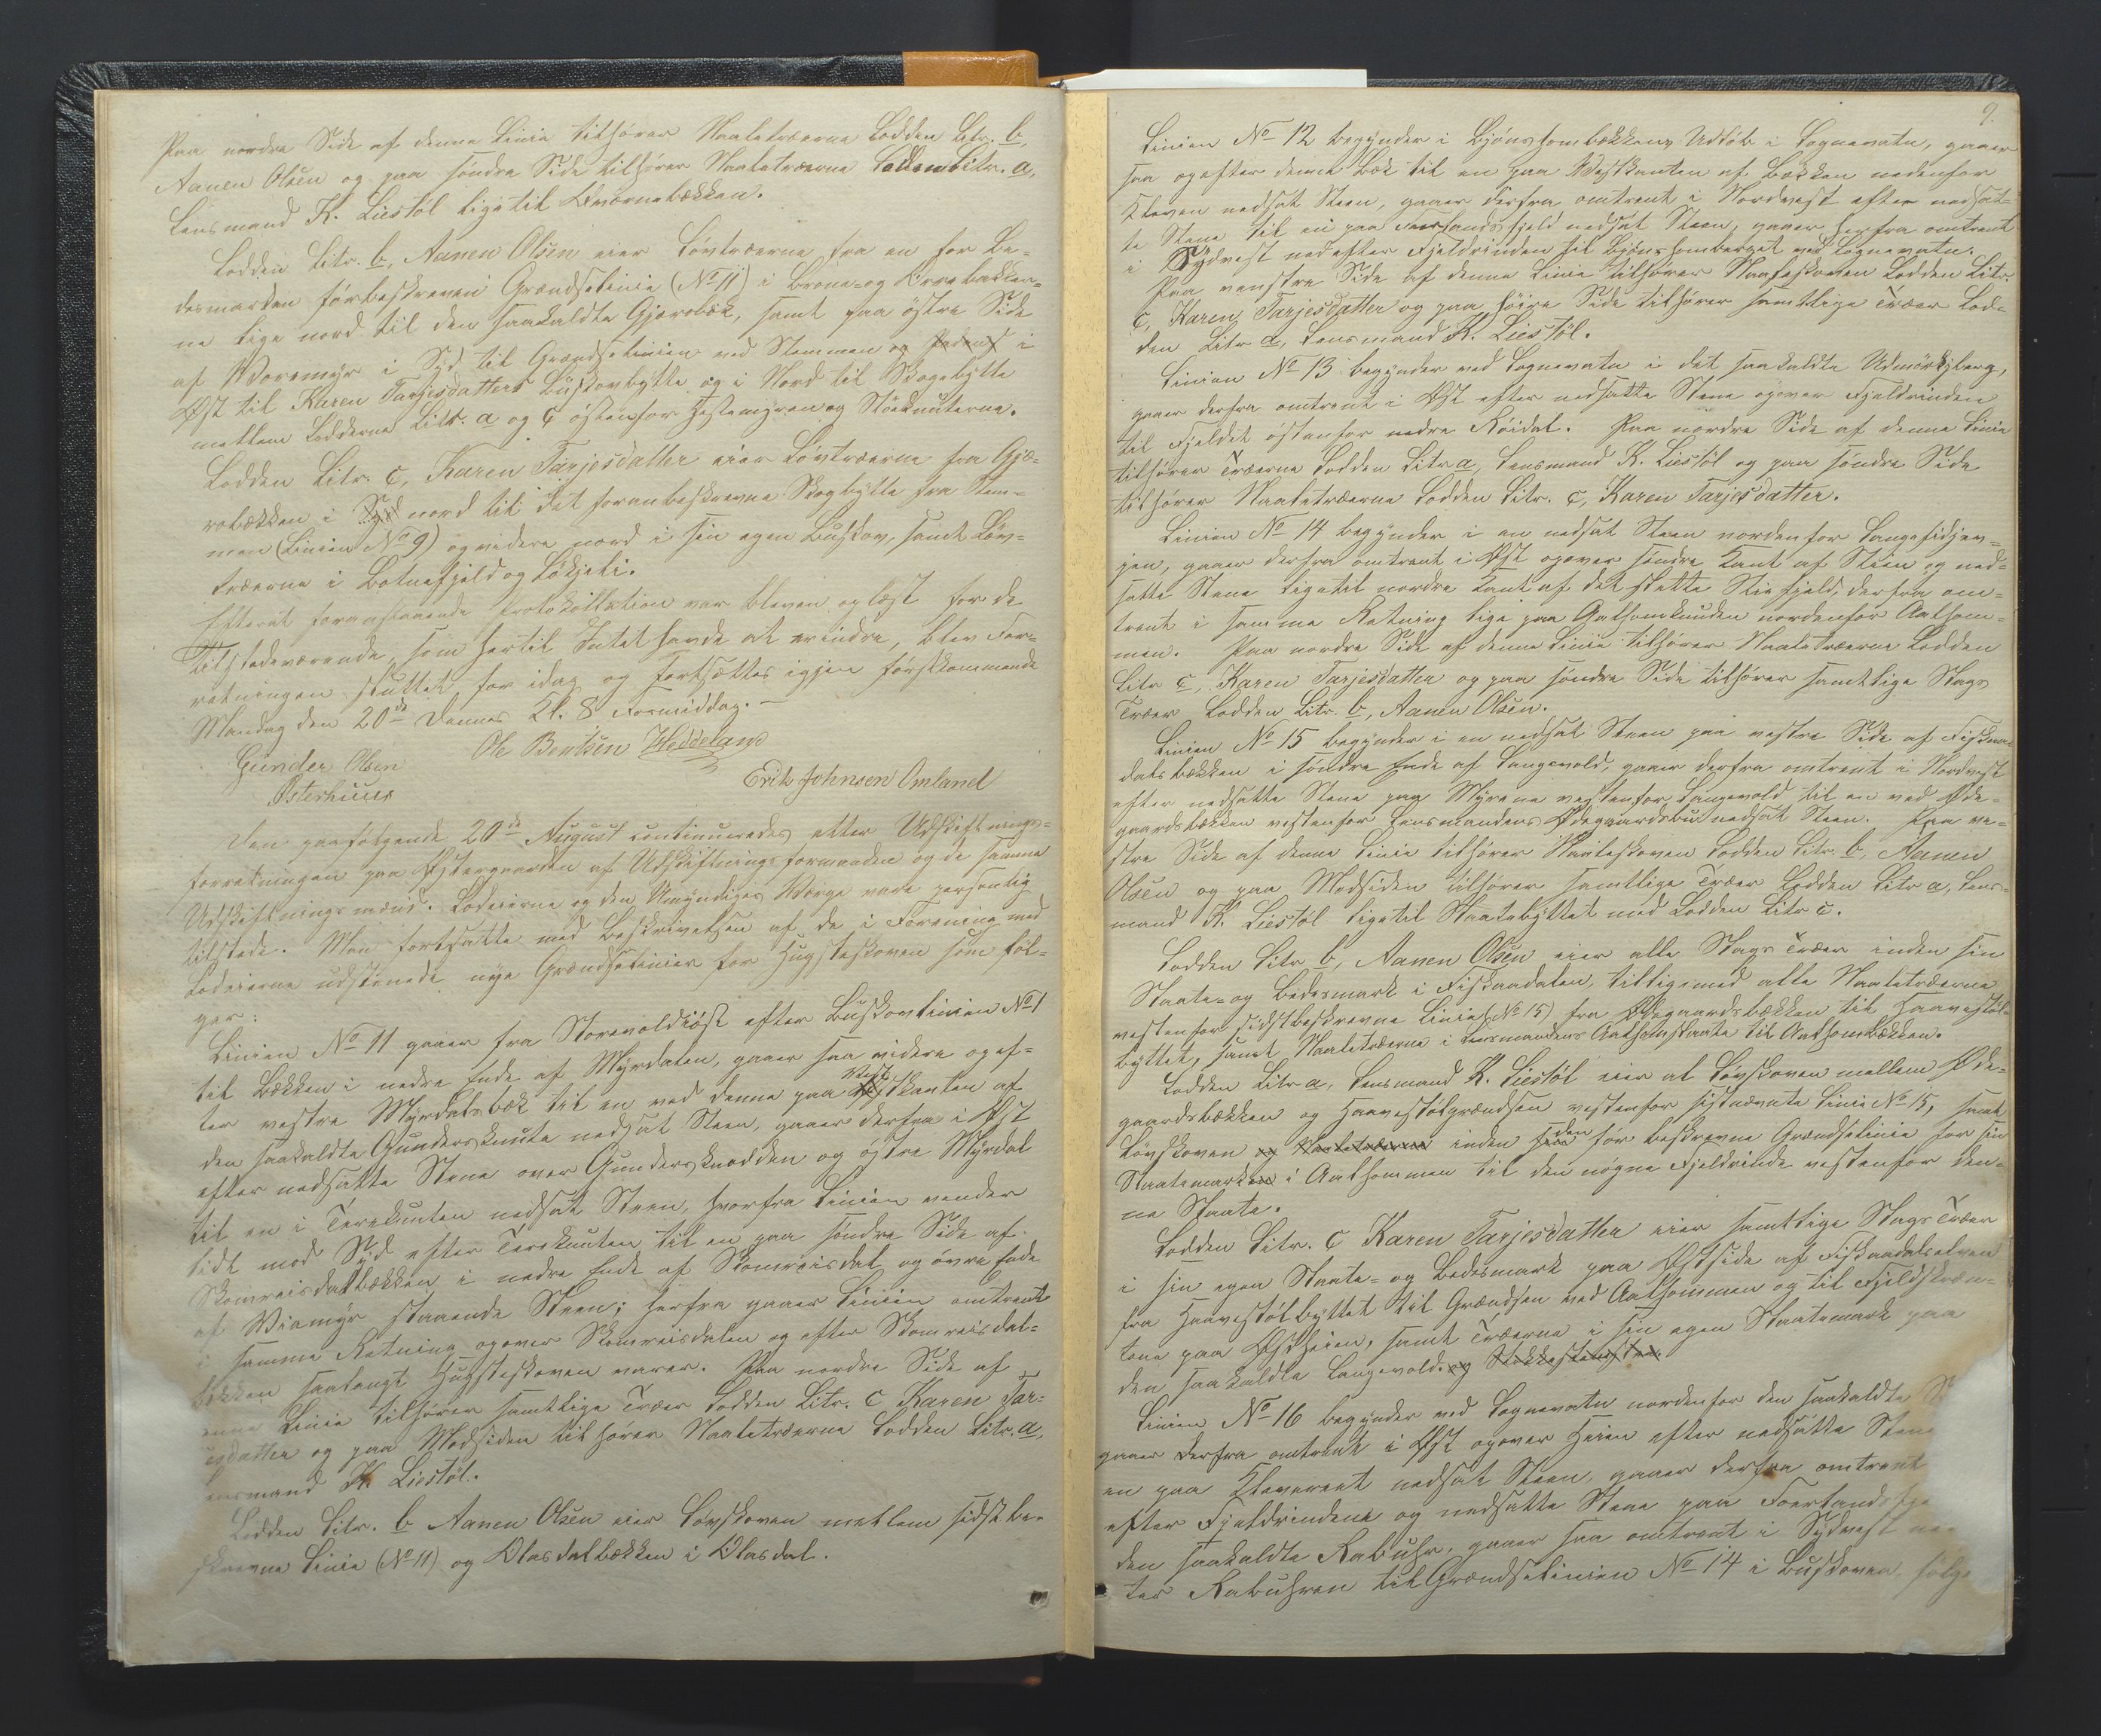 Paa nordre Side af denne Linie tilhører Naaletræerne Lodden Litr. b,
Aanen Olsen og paa søndre Side tilhører Naaletræerne Lodden Litr. a,
Lensmand K. Liestøl lige til Kværnebækken.
Lodden Litr. b, Aanen Olsen eier Løvtræerne fra en for Be-
desmarken førbeskreven Grændselinie (No 11) i Brone- og Orrebakken-
ne lige nord til den saakaldte Gjærobæk, samt paa østre Side
af Voremyr i Syd til Grændselinien ved Stemmen og i
Øst til Karen Tarjesdatters Buskovbytte og i Nord til Skogebytte
mellem Lodderne Litr. a og c østenfor Hestemyren og Stöcknuterne.
Lodden Litr. c, Karen Tarjesdatter eier Løvtræerne fra Gjæ-
robækken i Syd nord til det foranbeskrevne Skogbytte fra Stem-
men (Linien No 9) og videre nord i sin egen Buskov, samt Løv-
træerne i Botnefjeld og Løkjeli.
Efterat foranstaaende Protokollation var bleven oplæst for de
Tilstedeværende, som hertil Intet havde at erindre, blev For-
retningen sluttet for idag og fortsættes igjen førstkommende
Mandag den 20de dennes Kl. 8 Formiddag. -
Gunder Olsen Ole Bentsen Heddeland
Østerhuus Erik Johnsen Omland
Den paafølgende 20de August continueredes etter Udskiftnings-
forretningen paa Østergaarden af Udskiftningsformanden og de samme
Udskiftningsmænd. Lodeierne og den Umyndiges Værge vare personlig
tilstede. Man fortsatte med Beskrivelsen af de i Forening med
Lodeierne udstenede nye Grændselinier for Hugsteskoven som føl-
ger:
Linien No 11 gaaer fra Storevoldiøst efter Buskovlinien No 1
til Bækken i nedre Ende af Myrdalen, gaaer saa videre opef-
ter vestre Myrdalsbæk til en ved denne paa Vestkanten af
den saakaldte Gundersknute nedsat Steen, gaaer derfra i Øst
efter nedsatte Stene over Gundersknodden og østre Myrdal
til en i Terekunten nedsat Steen, hvorfra Linien vender
lidt mod Syd efter Terekunten til en paa søndre Side af
Skomreisdalbækken i nedre Ende af Skomreisdal og øvre Ende
af Viamyr staaende Steen; herfra gaaer Linien omtrent
i samme Retning opover Skomreisdalen og efter Skomreisdal-
bækken saalangt Hugsteskoven varer. Paa nordre Side af
denne Linie tilhører samtlige Træer Lodden Litr. c Karen Tar-
jesdatter og paa Modsiden tilhører Naaletræerne Lodden Litr. a,
Lensmand K. Liestøl.
Lodden Litr. b Aanen Olsen eier Løvskoven mellem sidstbe-
skrevne Linie (No 11) og Olasdalbækken i Olasdal.
9.
Linien No 12 begynder i Bjønshombækkens Udløb i Lognevatn, gaaer
saa opefter denne Bæk til en paa Vestkanten af Bækken nedenfor
Kleven nedsat Steen, gaaer derfra omtrent i Nordvest efter nedsat-
te Stene til en paa Foerlandsfjeld nedsat Steen, gaaer herfra omtrent
i Sydvest nedefter Fjeldrinden til Bjønshomberget ved Lognevatn.
Paa venstre Side af denne Linie tilhører Naaleskoven Lodden Litr.
c, Karen Tarjesdatter og paa høire Side tilhører samtlige Træer Lod-
den Litr a, Lensmand K. Liestøl.
Linien No 13 begynder ved Lognevatn i det saakaldte Udmørkjberg,
gaaer derfra omtrent i Øst efter nedsatte Stene opover Fjeldrinden
til Fjeldet østenfor nedre Röidal. Paa nordre Side af denne Linie
tilhører Træerne Lodden Litr a, Lensmand K. Liestøl og paa søndre Side
tilhører Naaletræerne Lodden Litr. c, Karen Tarjesdatter.
Linien No 14 begynder i en nedsat Steen nordenfor Langesidjen-
jen, gaaer derfra omtrent i Øst opover søndre Kant af Stien og ned-
satte Stene lige til nordre Kant af det slette Stiefjeld, derfra om-
trent i samme Retning lige paa Aalhomknuden nordenfor Aalhom-
men. Paa nordre Side af denne Linie tilhører Naaletræerne Lodden
Litr c, Karen Tarjesdatter og paa søndre Side tilhører samtlige Slags
Træer Lodden Litr. b, Aanen Olsen.
Linien No 15 begynder i en nedsat Steen paa vestre Side af Fiskaa-
dalsbækken i søndre Ende af Langevold, gaaer derfra omtrent i Nordvest
efter nedsatte Stene paa Myrene vestenfor Langevold til en ved Øde-
gaardsbækken vestenfor Lensmandens Ødegaardsbu nedsat Steen. Paa ve-
stre Side af denne Linie tilhører Naaleskoven Lodden Litr. b, Aanen
Olsen og paa Modsiden tilhører samtlige Træer Lodden Litr a, Lens-
mand K. Liestøl lige til Slaatebyttet med Lodden Litr c.
Lodden Litr b, Aanen Olsen eier alle Slags Træer inden sin
Slaate- og Bedesmark i Fiskaadalen, tilligemed alle Naaletræerne
vestenfor sidstbeskrevne Linie (No 15) fra Ødegaardsbækken til Haavestöl-
byttet, samt Naaletræerne i Lensmandens Aalhomslaate til Aalhombækken.
Lodden Litr a, Lensmand K. Liestøl eier al Løvskoven mellem Øde-
gaardsbækken og Haavestölgrændsen vestenfor sistnævnte Linie No 15, samt
Løvskoven og Naaletræerne inden den før beskrevne Grændselinie for sin
Slaatemarken i Aalhommen til den nøgne Fjeldrinde vestenfor den-
ne Slaate.
Lodden Litr. c Karen Tarjesdatter eier samtlige Slags Træer
i sin egen Slaate- og Bedesmark paa Østside af Fiskaadalselven
fra Haavestölbyttet til Grændsen ved Aalhommen og til Fjeldskræn-
tene paa Østheien, samt Træerne i sin egen Slaatemark paa
den saakaldte Langevold. og
Linien No 16 begynder ved Lognevatn nordenfor den saakaldte
gaaer derfra omtrent i Øst opover Heien efter nedsatte Stene
en paa Kleverent nedsat Steen, gaaer derfra omtrent
efter Fjeldrindene og nedsatte Stene paa Foerlandsfje
den saakaldte Rabuhr, gaaer saa omtrent i Sydvest ne
ter Rabuhren til Grændselinien No 14 i Buskoven, følge